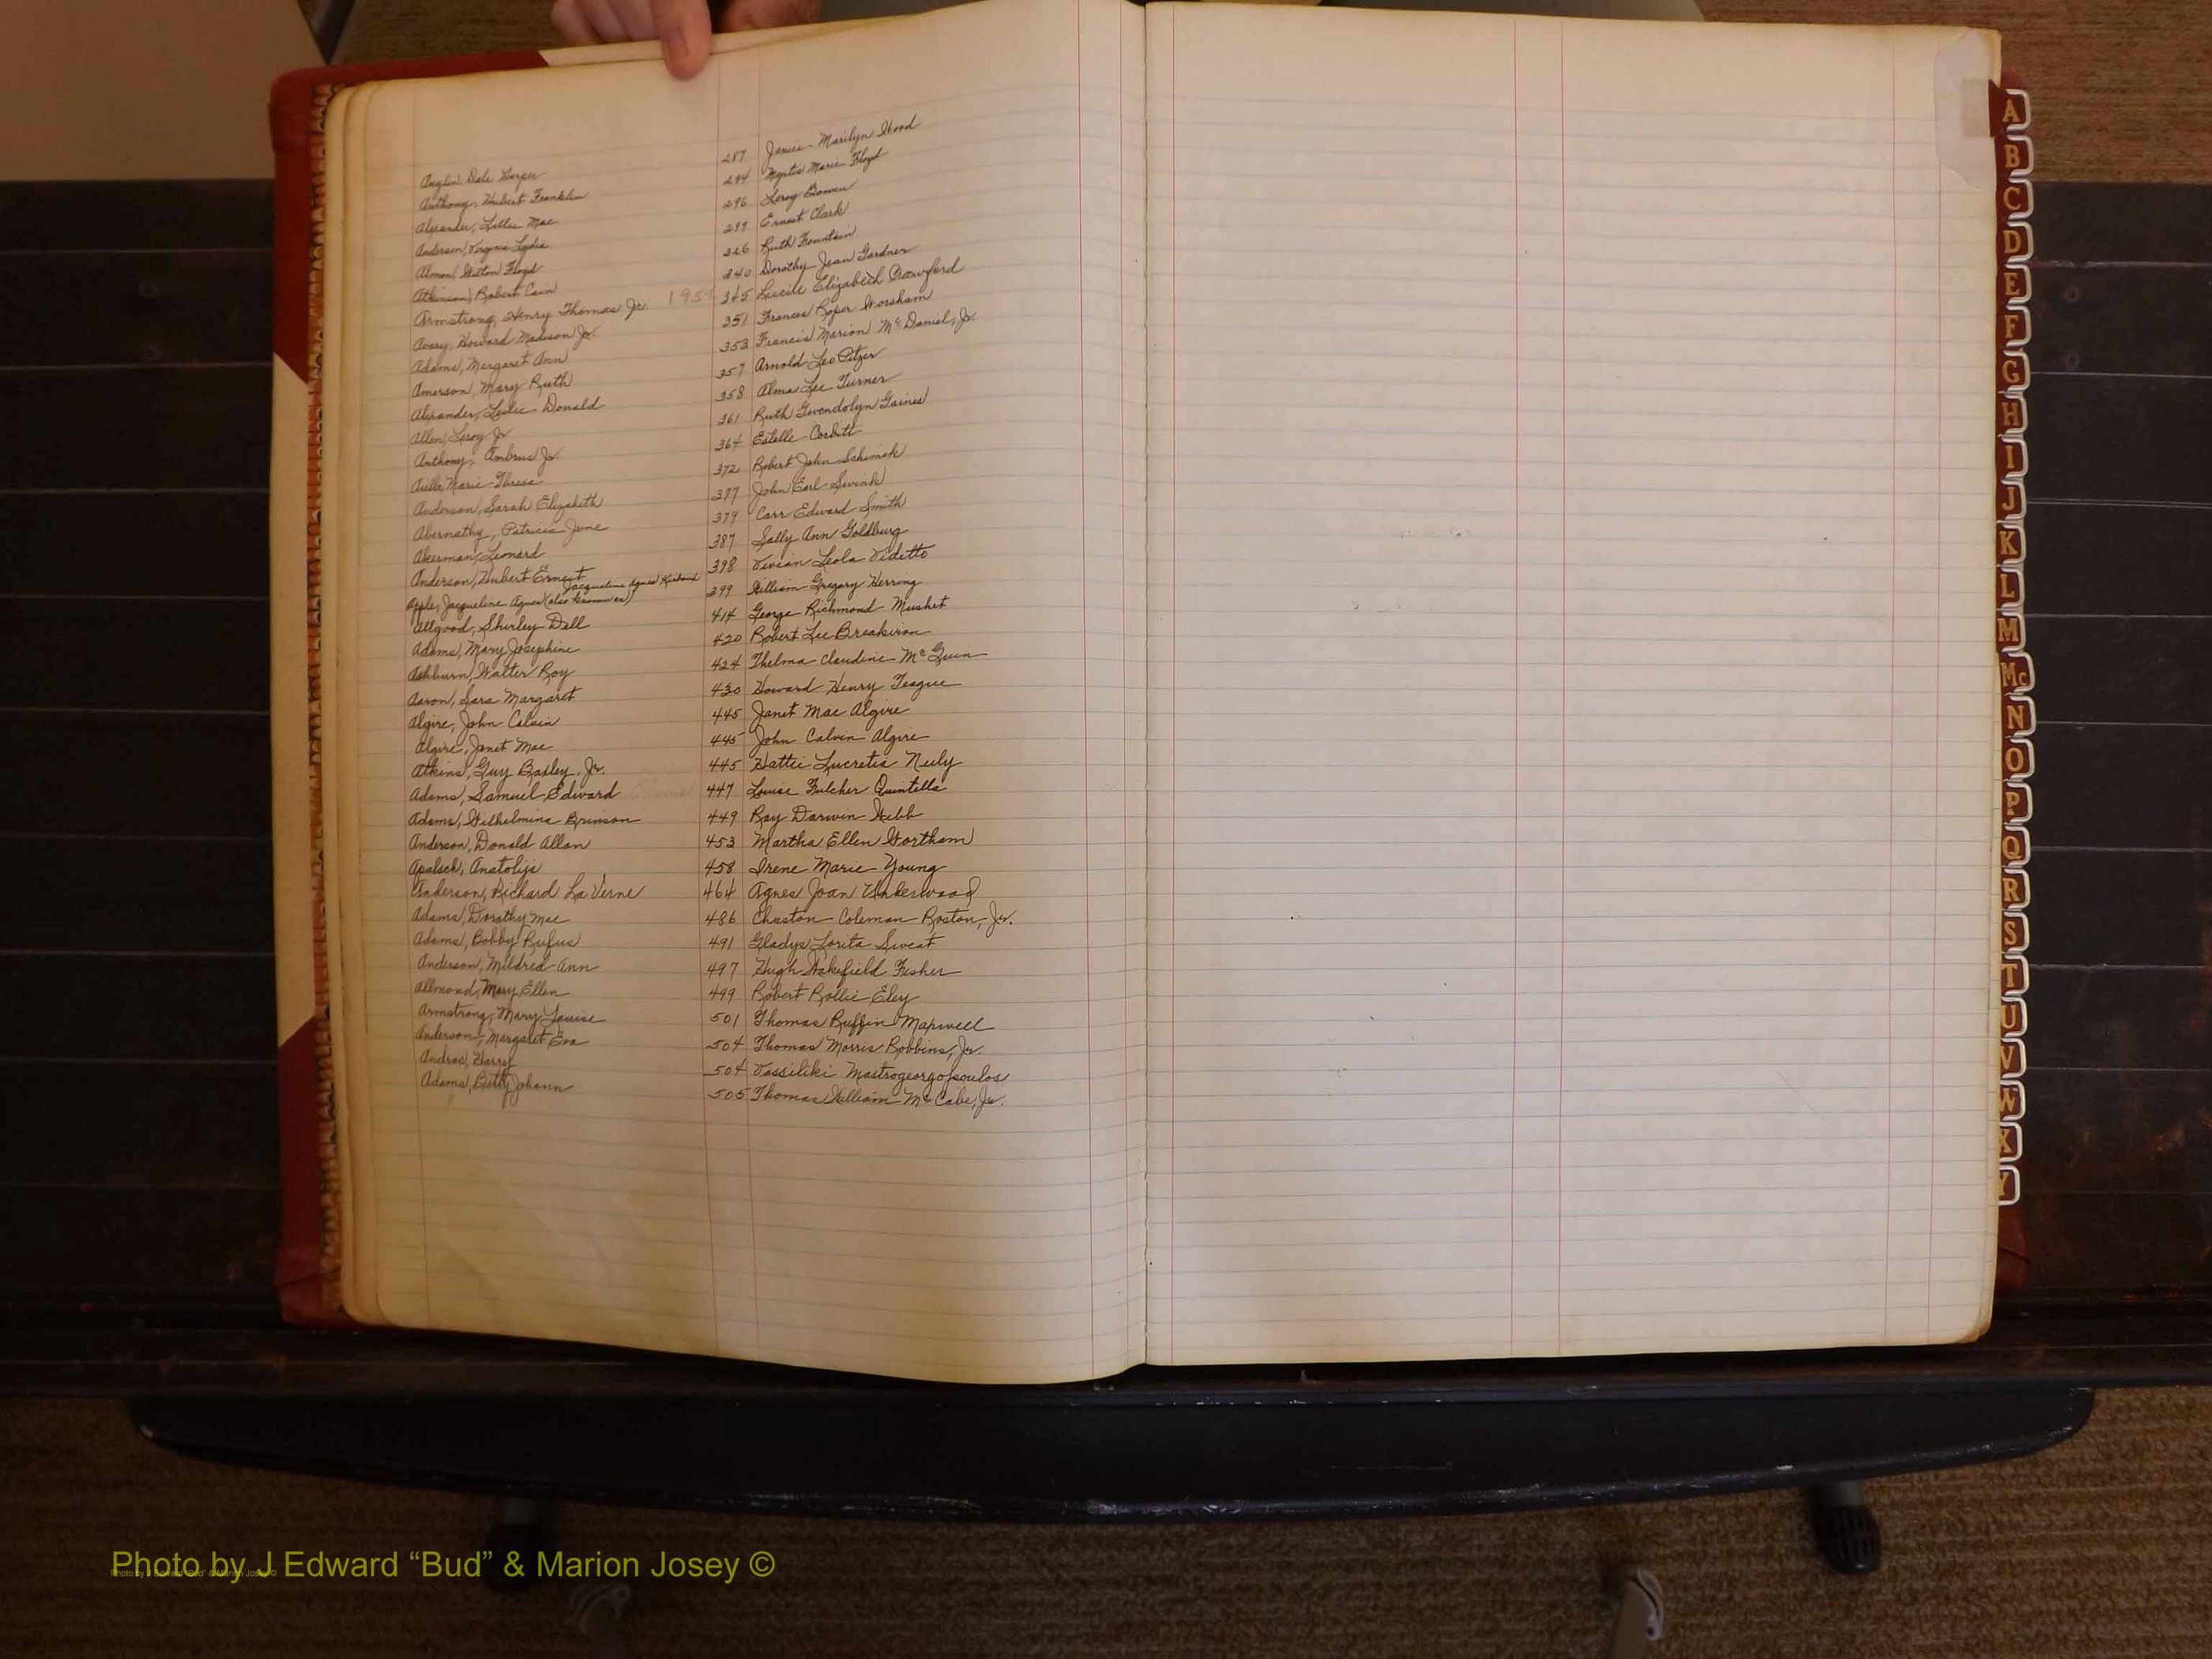 Anglin, Dale Harper 287 Janice Marilyn Wood
Anthony, Hubert Franklin 294 Myrtis Marie Floyd
Alexander, Lillie Mae 296 Leroy Bowen
Anderson, Virginia Lydia 299 Ernest Clark
Almon, Hilton Floyd 326 Ruth Fountain
Atkinson, Robert Cain 340 Dorothy Jean Gardner
Armstrong, Henry Thomas Jr. 195 345 Lucile Elizabeth Crawford
Avery, Howard Madison Jr. 351 Frances Roper Worsham
Adams, Margaret Ann 353 Francis Marion McDaniel, Jr.
Amerson, Mary Ruth 357 Arnold Leo Pitzer
Alexander, Leslie Donald 358 Alma Lee Turner
Allen, Leroy Jr 361 Ruth Gwendolyn Gaines
Anthony, Ambrus Jr. 364 Estelle Corbitt
Aiello, Marie Theresa 372 Robert John Schimek
Anderson, Sarah Elizabeth 377 John Earl Swink
Abernathy, Patricia June 379 Carr Edward Smith
Akerman, Leonard 387 Sally Ann Goldburg
Anderson, Hubert Ernest 398 Vivian Leola Videtto
Jacqueline Agnes
Apple, Jacqueline Agnes (also known as) 399 William Gregory Herring
Allgood, Shirley Dell 414 George Richmond Mushet
Adams, Mary Josephine 420 Robert Lee Breakiron
Ashburn, Walter Roy 424 Thelma Claudine McGuin
Aaron, Sara Margaret 430 Howard Henry Teague
Algire, John Calvin 445 Janet Mae Algire
Algire, Janet Mae 445 John Calvin Algire
Atkins, Guy Bagley, Jr. 445 Hattie Lucretia Neely
Adams, Samuel Edward 447 Louise Fulcher Quintella
Adams, Wilhelmina Brinson 449 Ray Darwin Webb
Anderson, Donald Allan 453 Martha Ellen Wortham
Apalsch, Anatolijs 458 Irene Marie Young
Anderson, Richard La Verne 464 Agnes Joan Underwood
Adams, Dorothy Mae 486 Chaston Coleman Roston, Jr.
Adams, Bobby Rufus 491 Gladys Lorita Sweat
Anderson, Mildred Ann 497 Hugh Wakefield Fisher
Allmond, Mary Ellen 499 Robert Rollie Eley
Armstrong, Mary Louise 501 Thomas Ruffin Maxwell
Anderson, Margaret Eva 504 Thomas Morris Robbins, Jr.
Andros, Harry 504 Vassiliki Mastrogeorgopoulos
Adams, Betty Johann 505 Thomas William McCabe, Jr.
A
B
C
D
E
F
G
H
I
J
K
L
M
Mc
N
O
P
Q
R
S
T
U
V
W
X
Y
Photo by J Edward “Bud” & Marion Josey ©
Photo by J Edward “Bud” & Marion Josey ©